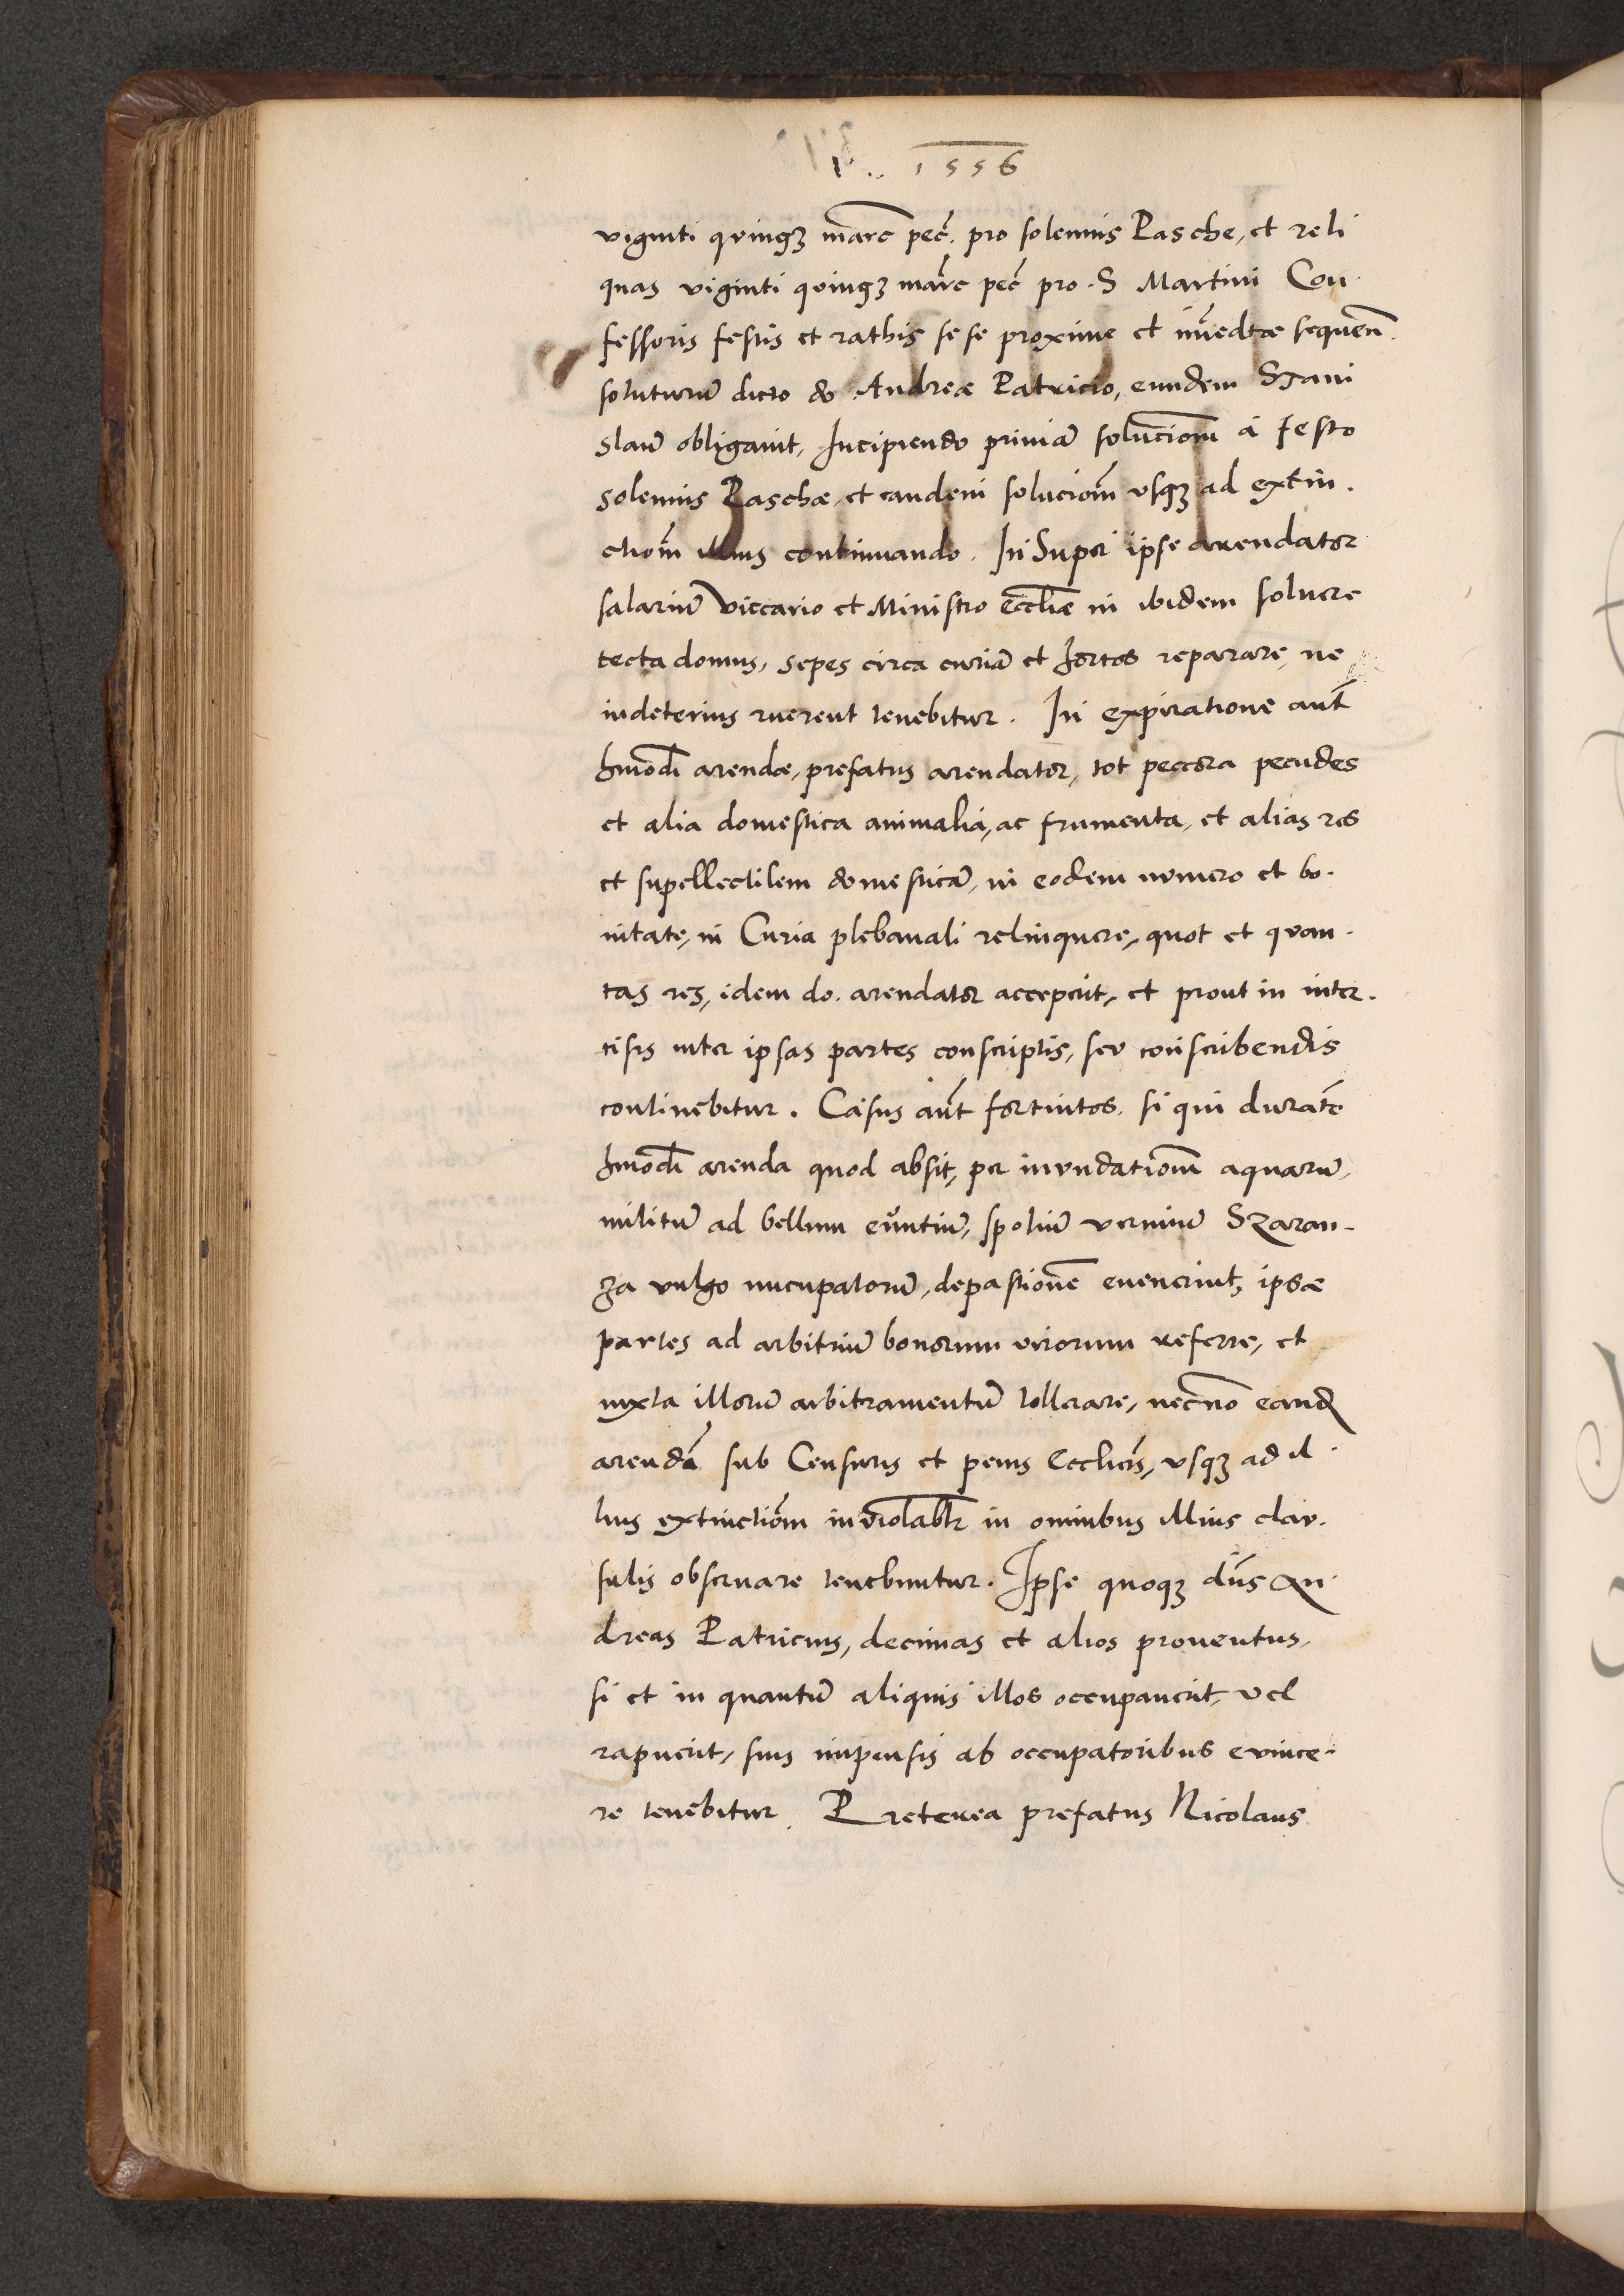 1556
viginti quinqꝫ marc̄ pec̄. pro solemnis Pasche, et reli
quas viginti quinqꝫ marc̄ pec̄ pro .S Martini Con
fessoris festis et rathis sese proxime et im̄edtae sequen̄.
soluturū dicto do Andreae Patricio, eundem Stani
slaū obligauit, Incipiendo primā solucionm̄ a festo
solemnis Paschae, et eandem solucionm̄ vsqꝫ ad extin.
ctionm̄ illius continuando. In Super ipse arendator
salariū viccario et Ministro eccliae in ibidem soluere
tecta domus, sepes circa curiā et hortos reparare, ne
indeterius ruerent tenebitur. In expiratione aut̄
hmodi arendae, prefatus arendator, tot peccora pecudes
et alia domestica animalia, ac frumenta, et alias res
et supellectilem domesticā, in eodem numero et bo.
nitate, in Curia plebanali relinquere, quot et quan.
tas res, idem do. arendator acceperit, et prout in inter.
cisis inter ipsas partes conscriptis, seu conscribendis
continebitur. Casus aut̄ fortuitos, si qui durate
hmodi arenda quod absit, per inundationm̄ aquarū,
militū ad bellum euntiū, spoliū vermiū Szaran.
za vulgo nucupatorū, depastione evenerint, ipsae
partes ad arbitriū bonorum virorum referre, et
iuxta illorū arbitramentū tollerare, necno eand
arendā sub Censuris et penis Ecclicis, vsqꝫ ad il.
lius extinctionm̄ inviolabltr in omnibus illius clau.
sulis obseruare tenebuntur. Ipse quoqꝫ dn̄s An.
dreas Patricius, decimas et alios prouentus,
si et in quantū aliquis illos occupauerit, vel
rapuerit, suis impensis ab occupatoribus evince.
re tenebitur. Preterea prefatus Nicolaus